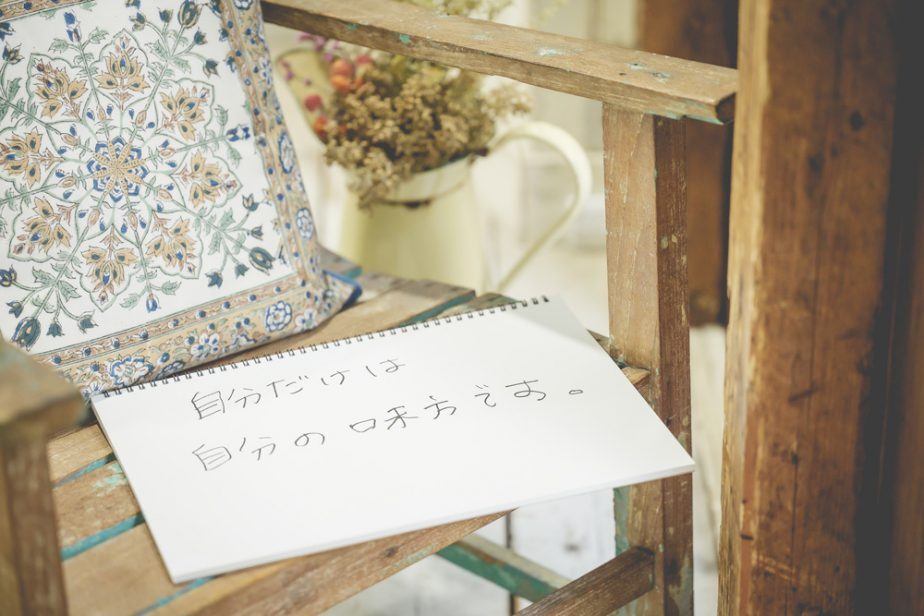 自分だけは
自分の味方です。